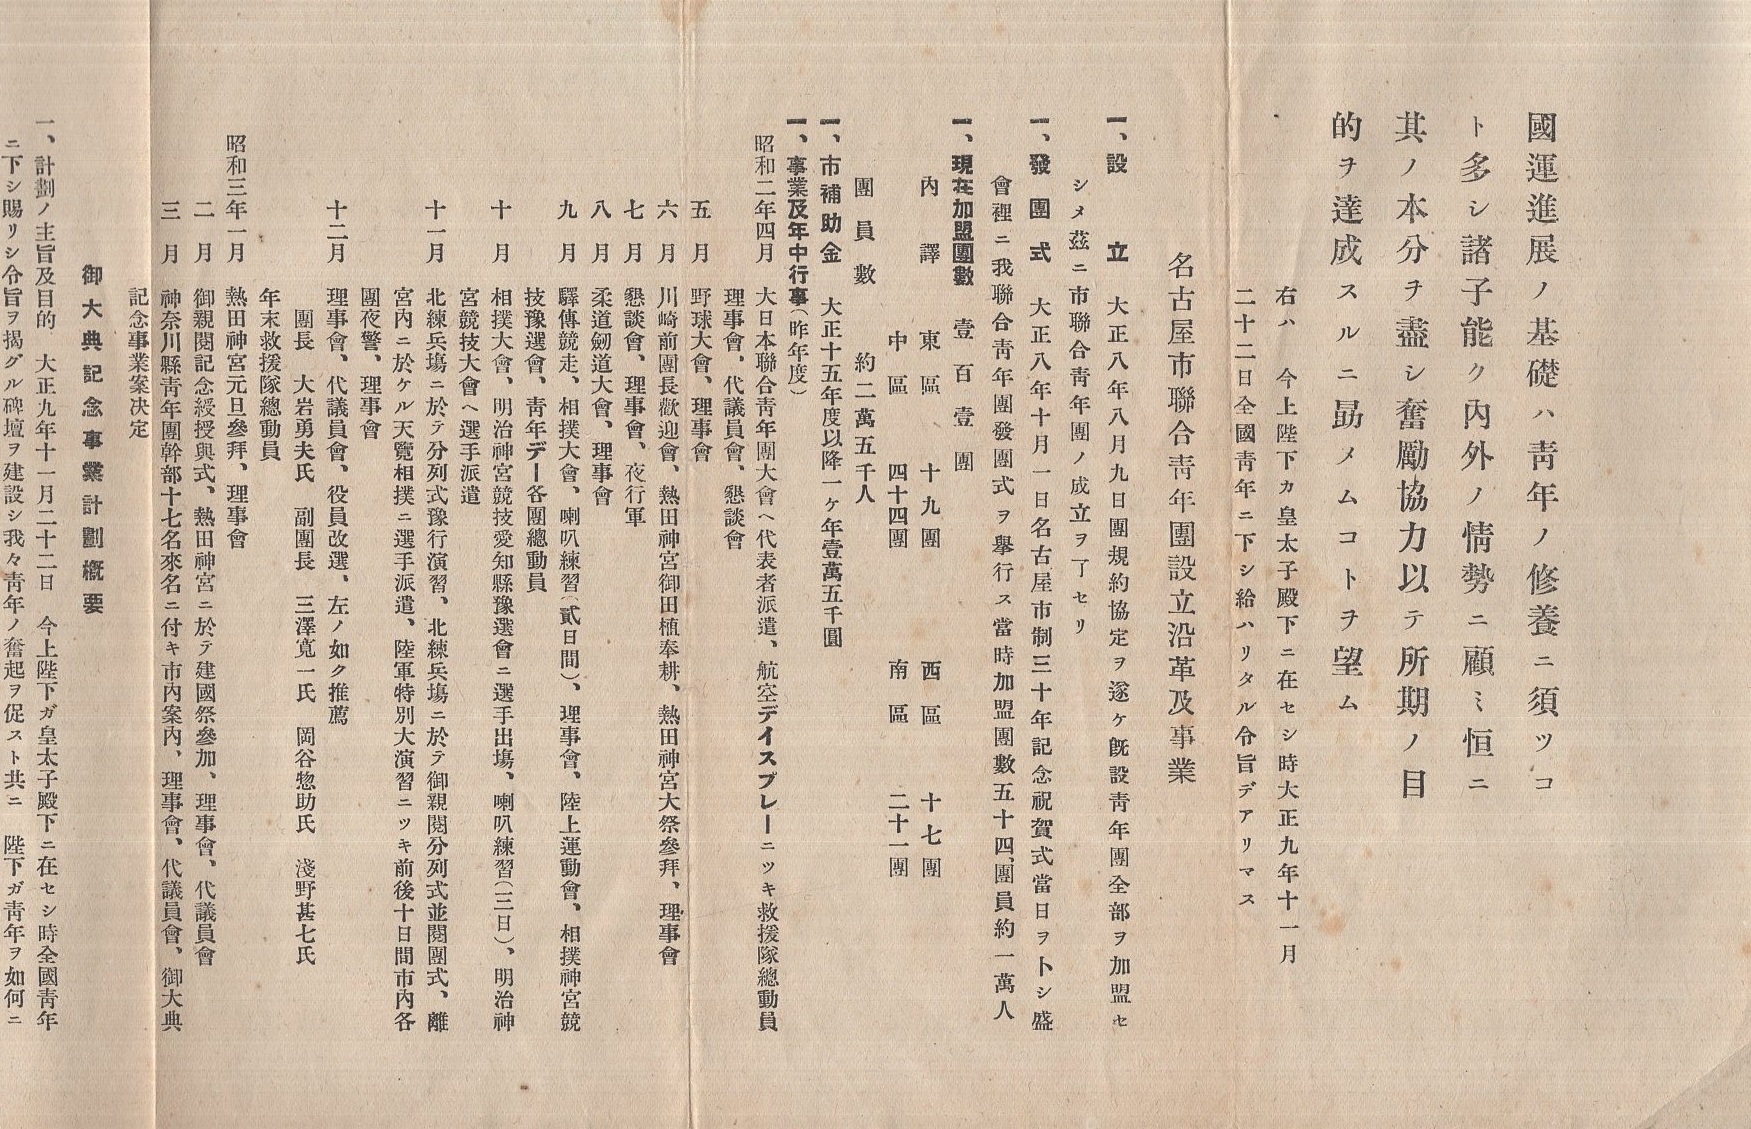 國運進展ノ基礎ハ靑年ノ修養ニ須ツコ
ト多シ諸子能ク內外ノ情勢ニ顧ミ恒ニ
其ノ本分ヲ盡シ奮勵協力以テ所期ノ目
的ヲ達成スルニ勗メムコトヲ望ム
右ハ 今上陛下カ皇太子殿下ニ在セシ時大正九年十一月
二十二日全國靑年ニ下シ給ハリタル令旨デアリマス
名古屋市聯合靑年團設立沿革及事業
一、設立 大正八年八月九日團規約協定ヲ遂ケ旣設靑年團全部ヲ加盟セ
シメ茲ニ市聯合靑年團ノ成立ヲ了セリ
一、發團式 大正八年十月一日名古屋市制三十年記念祝賀式當日ヲトシ盛
會裡ニ我聯合靑年團發團式ヲ擧行ス當時加盟團數五十四、團員約一萬人
一、現在加盟團數 壹百壹團
內譯 東區 十九團 西區 十七團
中區 四十四團 南區 二十一團
團員數 約二萬五千人
一、市補助金 大正十五年度以降一ヶ年壹萬五千圓
一、事業及年中行事(昨年度)
昭和二年四月 大日本聯合靑年團大會ヘ代表者派遣、航空デイスプレーニツキ救援隊總動員
理事會、代議員會、懇談會
五月 野球大會、理事會
六月 川崎前團長歡迎會、熱田神宮御田植奉耕、熱田神宮大祭參拜、理事會
七月 懇談會、理事會、夜行軍
八月 柔道劒道大會、理事會
九月 驛傳競走、相撲大會、喇叭練習(貳日間)、理事會、陸上運動會、相撲神宮競
技豫選會、靑年デー各團總動員
十月 相撲大會、明治神宮競技愛知縣豫選會ニ選手出塲、喇叭練習(三日)、明治神
宮競技大會ヘ選手派遣
十一月 北練兵塲ニ於テ分列式豫行演習、北練兵塲ニ於テ御親閱分列式並閱團式、離
宮內ニ於ケル天覽相撲ニ選手派遣、陸軍特別大演習ニツキ前後十日間市內各
團夜警、理事會
十二月 理事會、代議員會、役員改選、左ノ如ク推薦
團長 大岩勇夫氏 副團長 三澤寬一氏 岡谷惣助氏 淺野甚七氏
年末救援隊總動員
昭和三年一月 熱田神宮元旦參拜、理事會
二月 御親閱記念綬授與式、熱田神宮ニ於テ建國祭參加、理事會、代議員會
三月 神奈川縣靑年團幹部十七名來名ニ付キ市內案內、理事會、代議員會、御大典
記念事業案決定
御大典記念事業計劃槪要
一、計劃ノ主旨及目的 大正九年十一月二十二日 今上陛下ガ皇太子殿下ニ在セシ時全國靑年
ニ下シ賜リシ令旨ヲ揭グル碑壇ヲ建設シ我々靑年ノ奮起ヲ促スト共ニ 陛下ガ靑年ヲ如何ニ